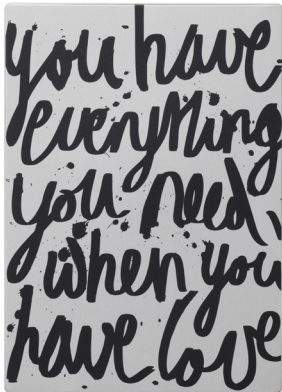 you have
everything
you need,
when you
have love